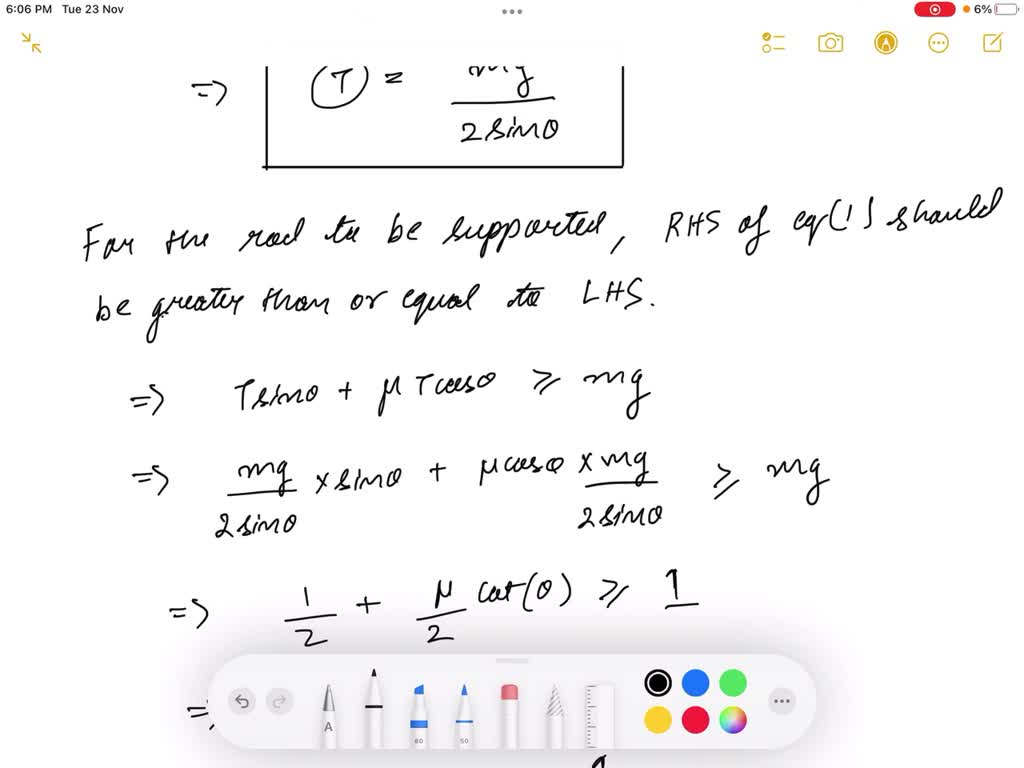 6:06 PM Tue 23 Nov
6%
=> (T) = mg / 2 sinθ
For the rod to be supported, RHS of eq(1) should
be greater than or equal to LHS.
=> T sinθ + μ T cosθ ≥ mg
=> mg / 2 sinθ × sinθ + μ cosθ × mg / 2 sinθ ≥ mg
=> 1 / 2 + μ / 2 cot(θ) ≥ 1
=>
A
80
50